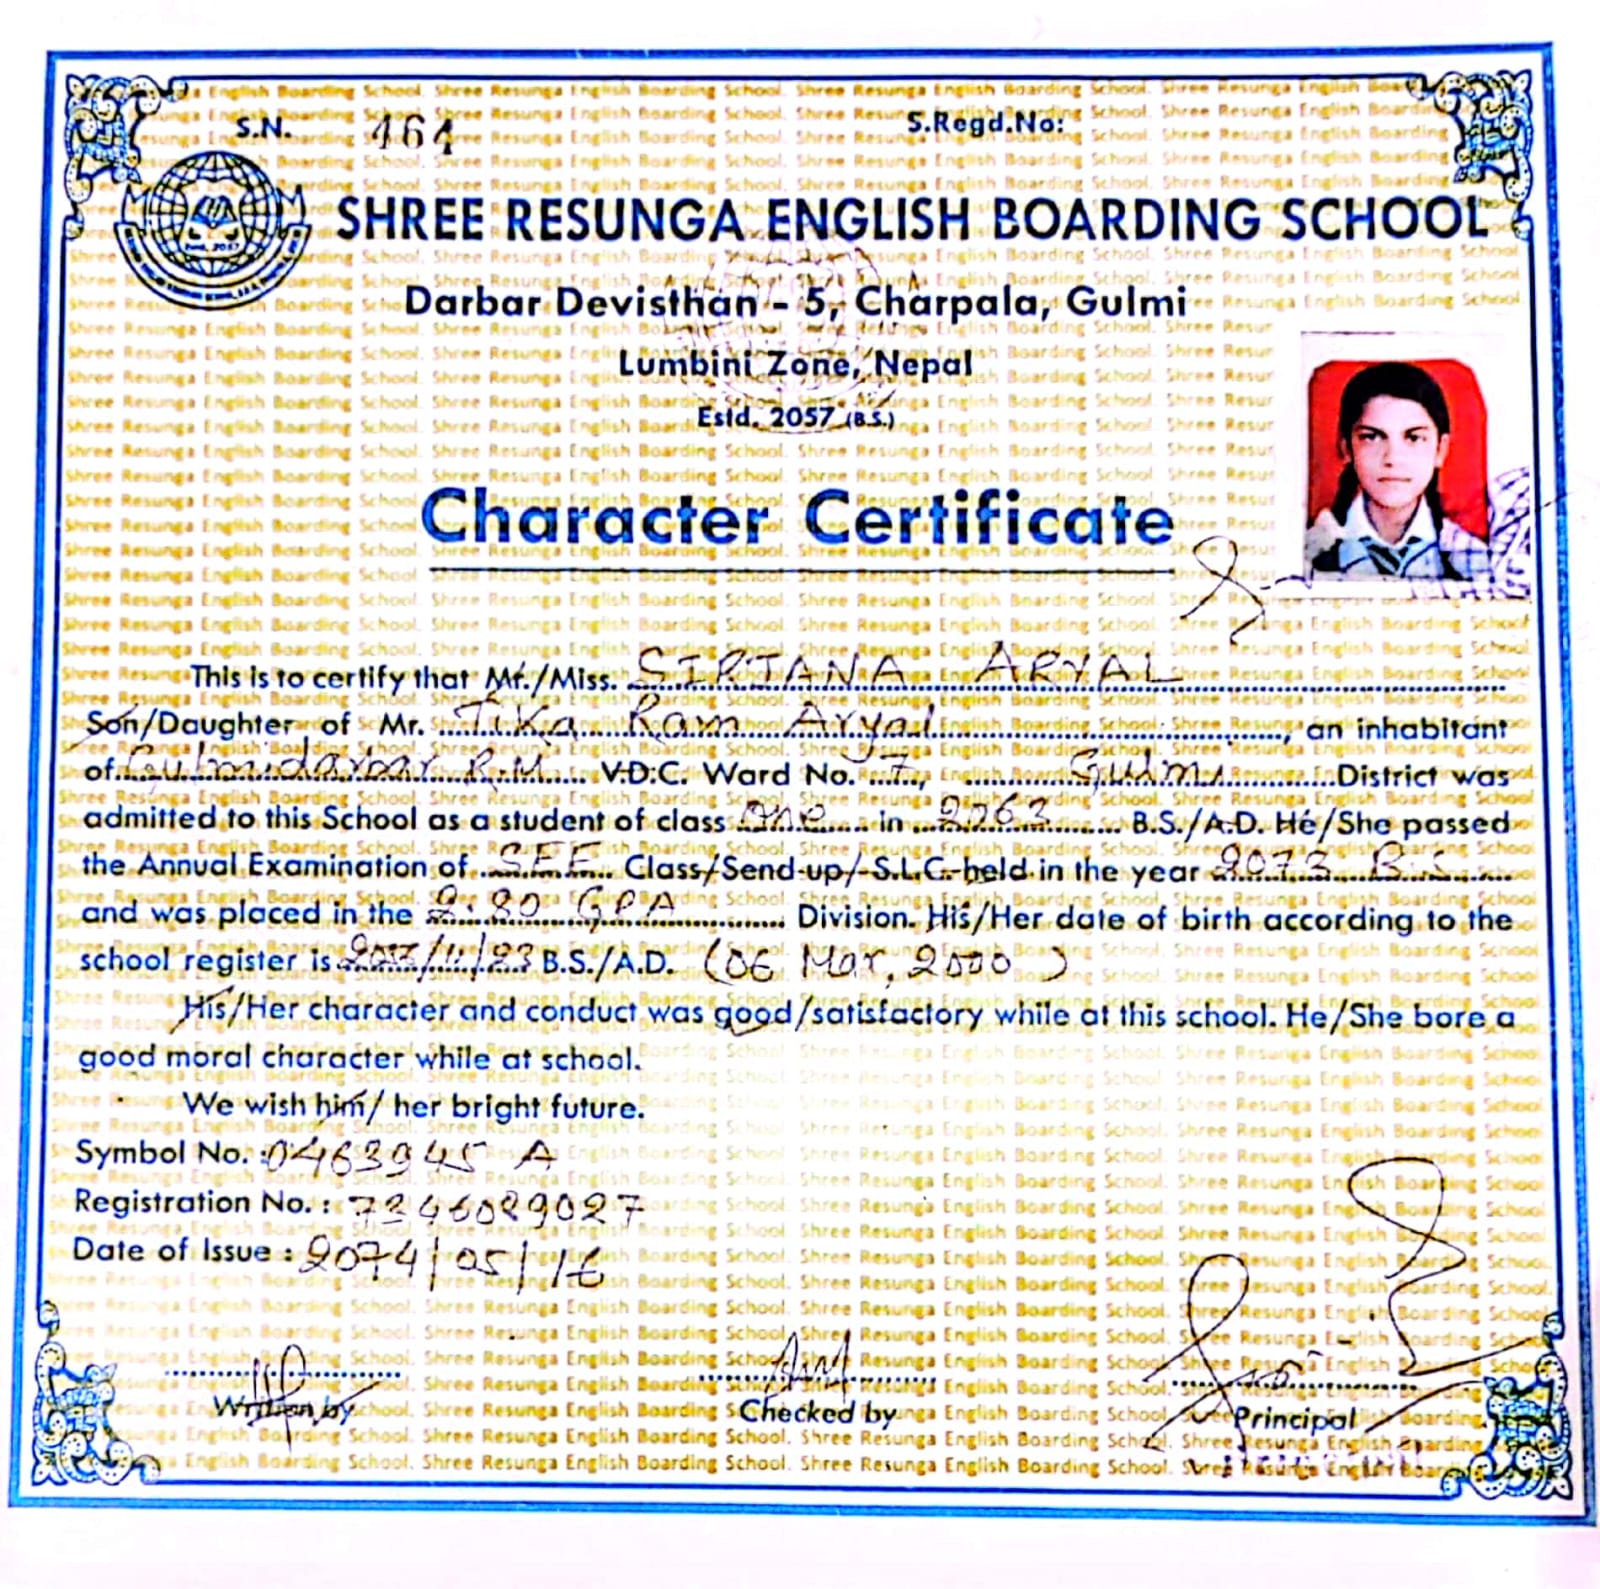 S.N. 464 S.Regd.No:
SHREE RESUNGA ENGLISH BOARDING SCHOOL
Darbar Devisthan - 5, Charpala, Gulmi
Lumbini Zone, Nepal
Estd. 2057 (B.S.)
Character Certificate
This is to certify that Mr./Miss. SIRJANA ARYAL
Son/Daughter of Mr. Tika Ram Aryal, an inhabitant
of Gulmidarbar R.M. V.D.C. Ward No. 7, Gulmi District was
admitted to this School as a student of class One in 2063 B.S./A.D. He/She passed
the Annual Examination of S.E.E. Class/Send-up/S.L.C. held in the year 2073 B.S.
and was placed in the 2.80 GPA Division. His/Her date of birth according to the
school register is B.S./A.D. (06 Mar, 2000)
His/Her character and conduct was good/satisfactory while at this school. He/She bore a
good moral character while at school.
We wish him/ her bright future.
Symbol No. : 0463945 A
Registration No. : 7346089027
Date of Issue : 2074/05/16
Written by Checked by Principal